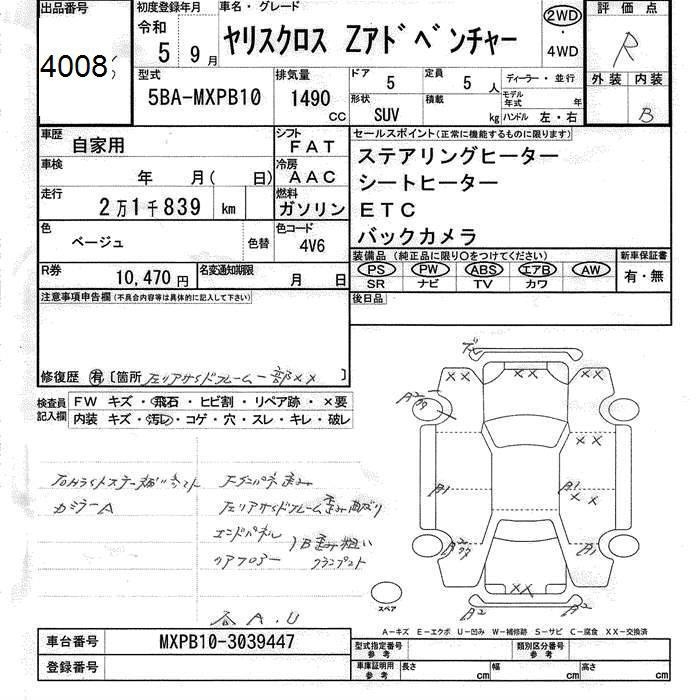 出品番号 初度登録年月 車名・グレード 評価点
令和 5 9月 ヤリスクロス Zアドベンチャー 2WD ・ 4WD R
4008
型式 排気量 ドア 5 定員 5 人 ディーラー・並行 外装 内装
5BA-MXPB10 1490 CC 形状 SUV 積載 kg モデル年式 年 ハンドル 左・右 B
車歴 自家用 シフト FAT セールスポイント(正常に機能するものに限ります)
車検 年 月( 日) 冷房 AAC ステアリングヒーター
シートヒーター
走行 2万1千839 km 燃料 ガソリン ETC
色 ベージュ 色替 色コード 4V6 バックカメラ
装備品(純正品に限り○をつけてください) 新車保証書
R券 10,470円 名変通知期限 月 日 PS PW ABS エアB AW 有・無
SR ナビ TV カワ
注意事項申告欄(不具合内容等は具体的に記入して下さい) 後日品
修復歴 有 〔箇所 左リアサイドフレーム一部××〕
検査員記入欄 FW キズ・飛石・ヒビ割・リペア跡・×要
内装 キズ・汚レ・コゲ・穴・スレ・キレ・破レ
××
××
××
A1
A1
××
A1
××
A2
A2
カミラーA
左リアサイドフレーム歪み曲がり
エンドパネル
リアフロアー
スペア
A,U
A-キズ E-エクボ U-凹み W-補修跡 S-サビ C-腐食 XX-交換済
車台番号 MXPB10-3039447 型式指定番号 参考 類別区分番号 参考
登録番号 車庫証明用 参考 長さ cm 幅 cm 高さ cm